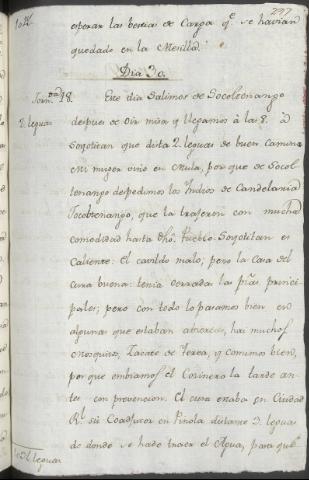 297
104.
esperar las bestias de Carga q.e se havian
quedado en la Mesilla.
Dia 30.
Jorn.da 18.
Este dia Salimos de Socoltenango
2. leguas
despues de oir misa y llegamos à las 8. à
Soyatitan que dista 2. leguas de buen Camino
mi muger vino en Mula, por que de Socol-
tenango despedimos los Indios de Candelaria
Socoltenango, que la trajeron con mucha
comodidad hasta dho. Pueblo. Soyatitan es
Caliente: El cavildo malo; pero la Casa del
cura buena: tenia cerradas las piezas princi-
pales; pero con todo lo pasamos bien en
algunas que estaban abiertas, hai muchos
mosquitos, Zacate de Jerea, y comimos bien,
por que embiamos el Cosinero la tarde an-
tes con prevencion. El cura estaba en Ciudad
R.l su Coadjutor en Pinola distante 3. leguas
de donde se hace traer el Agua, para que
104. leguas